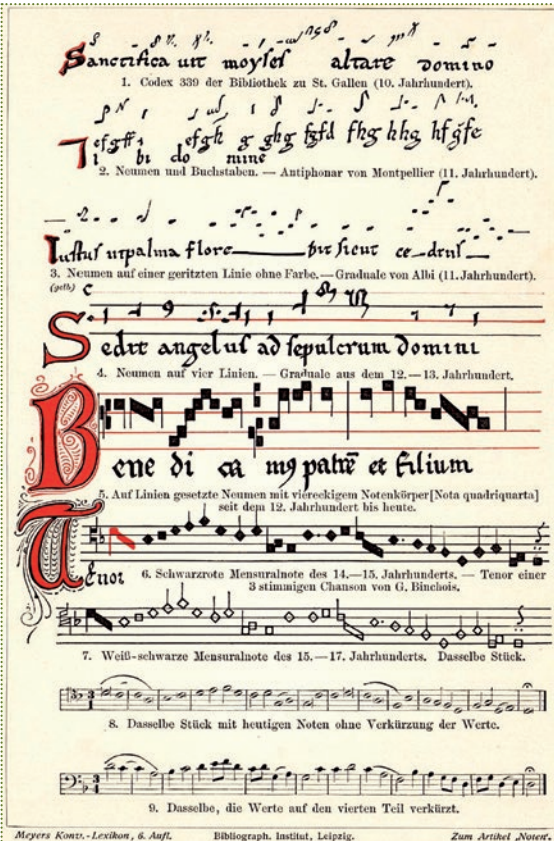 Sanctifica uit moyses altare domino
1. Codex 339 der Bibliothek zu St. Gallen (10. Jahrhundert).
I bi do mine
2. Neumen und Buchstaben. — Antiphonar von Montpellier (11. Jahrhundert).
Iustus utpalma flore
3. Neumen auf einer geritzten Linie ohne Farbe. — Graduale von Albi (11. Jahrhundert).
(gelb) C
Sedit angelus ad sepulcrum domini
4. Neumen auf vier Linien. — Graduale aus dem 12.—13. Jahrhundert.
Bene di ca m9 patrē et filium
5. Auf Linien gesetzte Neumen mit viereckigem Notenkörper [Nota quadriquarta]
seit dem 12. Jahrhundert bis heute.
Tenor
6. Schwarzrote Mensuralnote des 14.—15. Jahrhunderts. — Tenor einer
3 stimmigen Chanson von G. Binchois.
7. Weiß-schwarze Mensuralnote des 15.—17. Jahrhunderts. Dasselbe Stück.
8. Dasselbe Stück mit heutigen Noten ohne Verkürzung der Werte.
9. Dasselbe, die Werte auf den vierten Teil verkürzt.
Meyers Konv.-Lexikon, 6. Aufl. Bibliograph. Institut, Leipzig. Zum Artikel „Noten“.